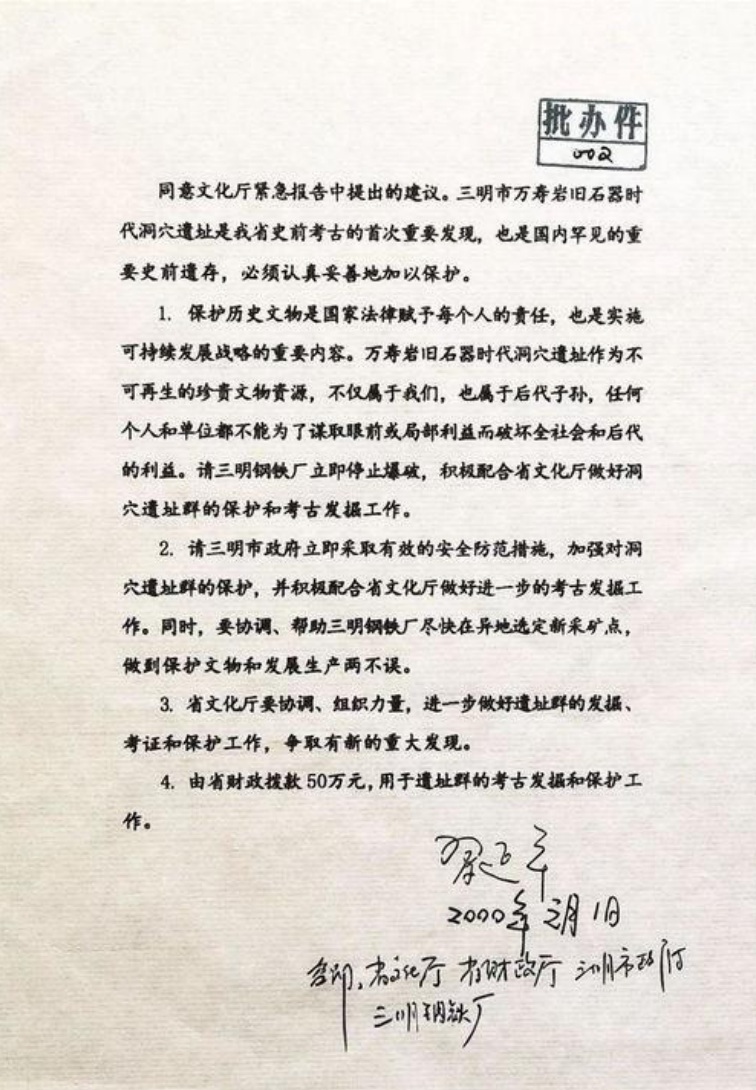 批办件
002
同意文化厅紧急报告中提出的建议。三明市万寿岩旧石器时
代洞穴遗址是我省史前考古的首次重要发现，也是国内罕见的重
要史前遗存，必须认真妥善地加以保护。
1. 保护历史文物是国家法律赋予每个人的责任，也是实施
可持续发展战略的重要内容。万寿岩旧石器时代洞穴遗址作为不
可再生的珍贵文物资源，不仅属于我们，也属于后代子孙，任何
个人和单位都不能为了谋取眼前或局部利益而破坏全社会和后代
的利益。请三明钢铁厂立即停止爆破，积极配合省文化厅做好洞
穴遗址群的保护和考古发掘工作。
2. 请三明市政府立即采取有效的安全防范措施，加强对洞
穴遗址群的保护，并积极配合省文化厅做好进一步的考古发掘工
作。同时，要协调、帮助三明钢铁厂尽快在异地选定新采矿点，
做到保护文物和发展生产两不误。
3. 省文化厅要协调、组织力量，进一步做好遗址群的发掘、
考证和保护工作，争取有新的重大发现。
4. 由省财政拨款50万元，用于遗址群的考古发掘和保护工
作。
习近平
2000年元月1日
省文化厅 省财政厅 三明市政府
三明钢铁厂